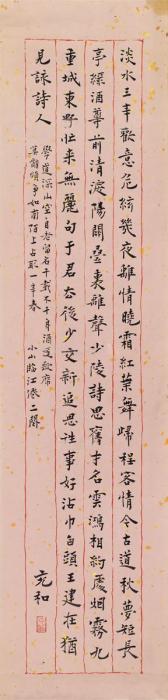 淡水三年歡意危絃幾夜離情曉霜紅葉舞歸程客情今古道秋夢短長
亭淥酒尊前清淚陽關疊裏離聲少陵詩思舊才名雲鴻相約處烟霧九
重城東野亡來無麗句于君去後少交親追思往事好沾巾白頭王建在猶
見詠詩人
學道深山空自老留名千載不干身酒筵歌席
莫辭頻爭如南陌上占取一年春
小山臨江僊二闋
充和